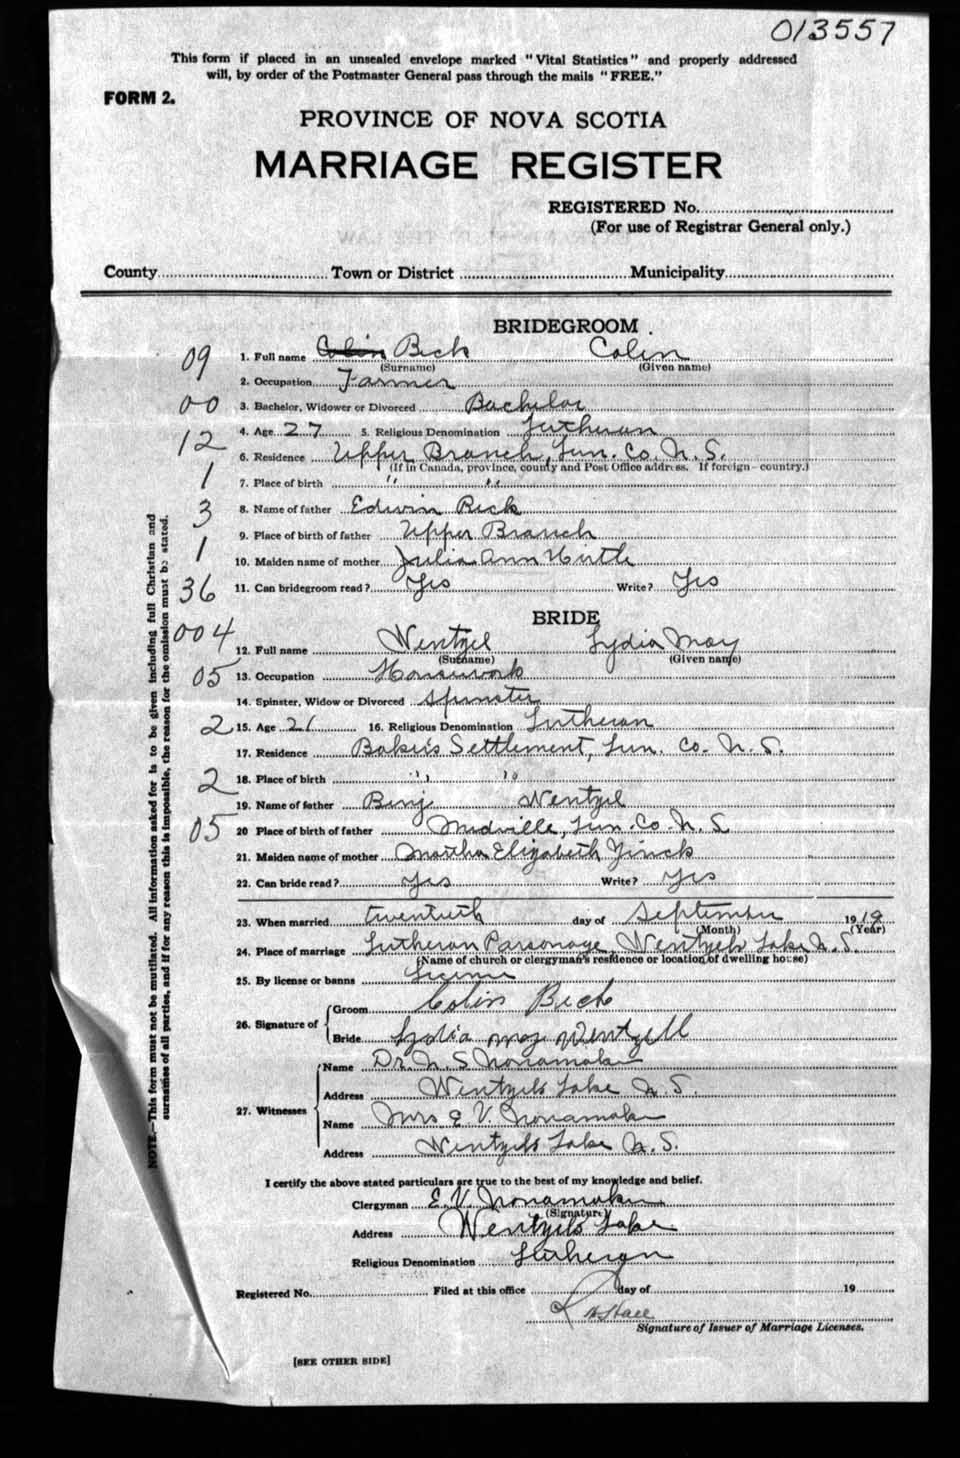 013557
This form if placed in an unsealed envelope marked "Vital Statistics" and properly addressed
will, by order of the Postmaster General pass through the mails "FREE."
FORM 2.
PROVINCE OF NOVA SCOTIA
MARRIAGE REGISTER
REGISTERED No.
(For use of Registrar General only.)
County Town or District Municipality
BRIDEGROOM
09
1. Full name Colin Beck Colin
(Surname) (Given name)
2. Occupation Farmer
00 3. Bachelor, Widower or Divorced Bachelor
4. Age 27 5. Religious Denomination Lutheran
12 6. Residence Upper Branch, Lun. Co. N. S.
(If in Canada, province, county and Post Office address. If foreign—country.)
1 7. Place of birth " "
3 8. Name of father Edwin Beck
9. Place of birth of father Upper Branch
1 10. Maiden name of mother Julia Ann Hirtle
36 11. Can bridegroom read? Yes Write? Yes
BRIDE
004 12. Full name Wentzel Lydia May
(Surname) (Given name)
05 13. Occupation Housework
14. Spinster, Widow or Divorced Spinster
2 15. Age 21 16. Religious Denomination Lutheran
17. Residence Bakers Settlement, Lun. Co. N. S.
18. Place of birth " "
2 19. Name of father Benj Wentzel
05 20 Place of birth of father Midville, Lun. Co. N. S
21. Maiden name of mother Martha Elizabeth Zinck
22. Can bride read? Yes Write? Yes
23. When married twentieth day of September 1919
(Month) (Year)
24. Place of marriage Lutheran Parsonage, Wentzels Lake N. S.
(Name of church or clergyman's residence or location of dwelling house)
25. By license or banns License
26. Signature of Groom Colin Beck
Bride Lydia may Wentzell
27. Witnesses Name Dr. N. S Nonamaker
Address Wentzels Lake N. S.
Name Mrs E. V. Nonamaker
Address Wentzels Lake N. S.
I certify the above stated particulars are true to the best of my knowledge and belief.
Clergyman E. V. Nonamaker
(Signature)
Address Wentzels Lake
Religious Denomination Lutheran
Registered No. Filed at this office day of 19
Signature of Issuer of Marriage Licenses.
[SEE OTHER SIDE]
NOTE.—This form must not be mutilated. All information asked for is to be given including full Christian and
surnames of all parties, and if for any reason this is impossible, the reason for the omission must be stated.